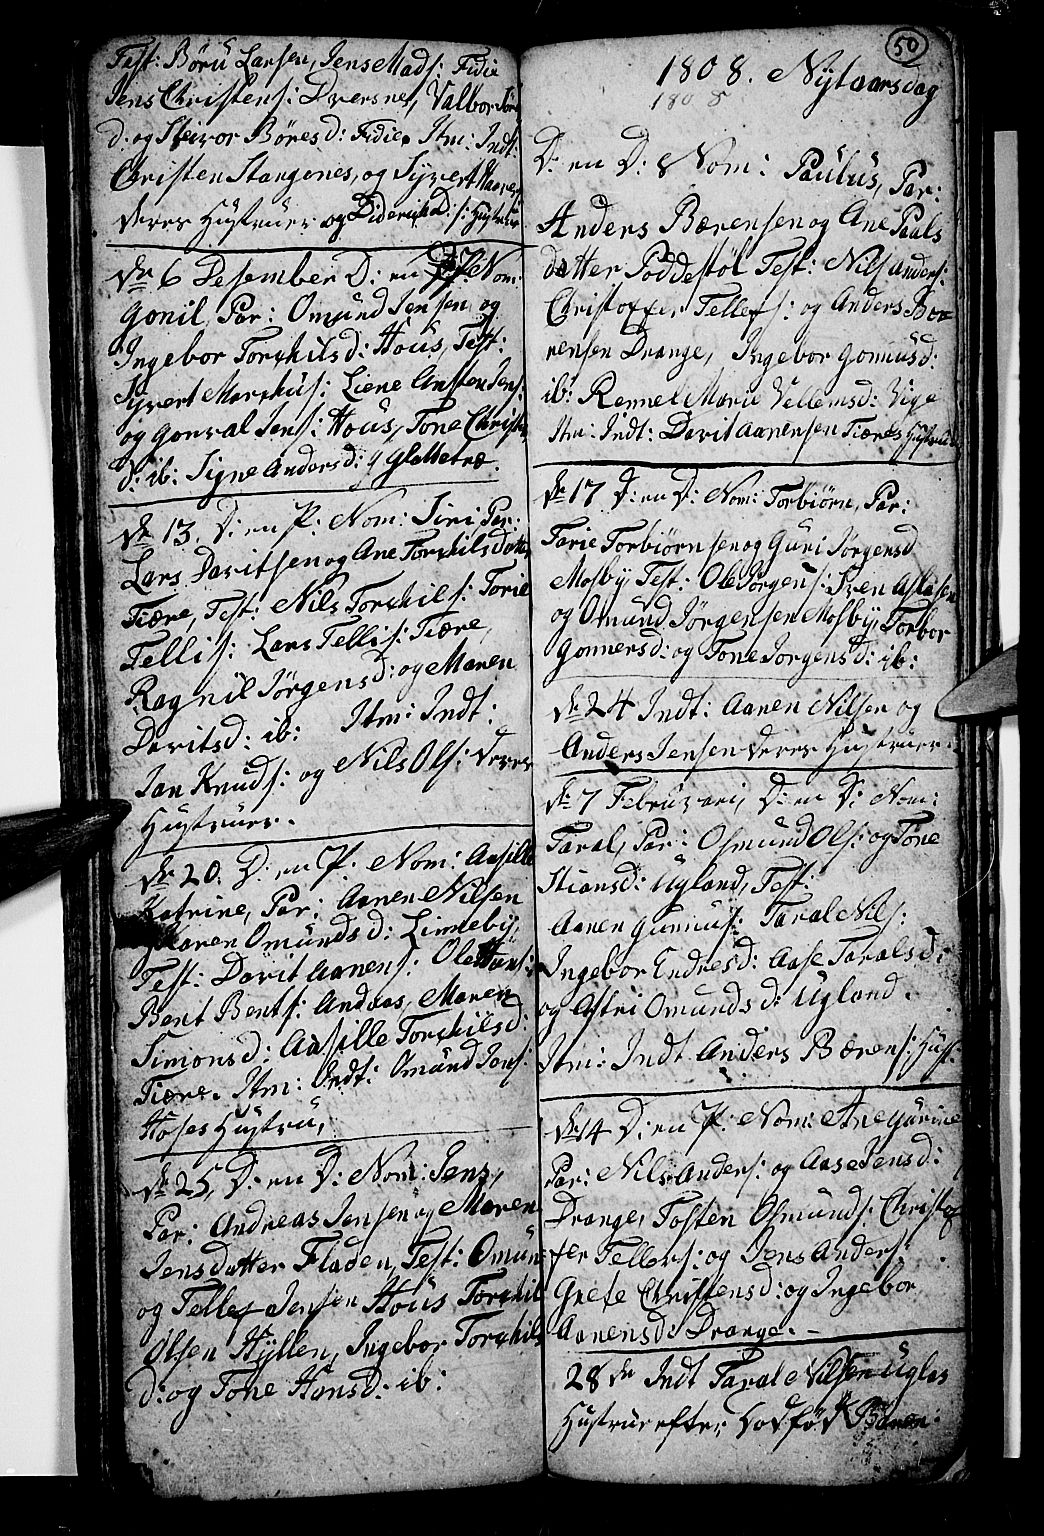 Test: Börü Larsen, Jens Mads: Fidie
Jens Christens: Dversnes, Valbor
d: og Steivor Börresd: Fidie, Itm: Indt:
Christen Stangenes, og Syvert
deres Hustruer og Diderich D: s: Hustrue
dn 6 Desember D: en P: Nom:
Gonil, Par: Omund Jensen og
Ingebor Torkilsd: Höus, Test:
Syvert Markus: Liene Ansten Jens:
og Gonval Jens: Höus, Tone Christens
d: ib: Signe Andersd: Glattetræ.
dn 13. D: en P: Nom: Siri Par:
Lars Davitsen og Ane Torkilsdatter
Tiære, Test: Nils Torkils: Torie
Tellis: Lars Tellis: Tiære,
Ragnil Jørgensd: og Maren
Davitsd: ib: Itm: Indt:
Jan Knuds: og Nils Ols: deres
Hustruer.
dn 20. D: en P: Nom: Aasille
Katrine, Par: Aanen Nilsen
Maren Omundsd: Linneby,
Test: Davit Aanens: Ole Hans:
Bent Bents: Andaas, Maren
Simonsd: Aasille Torkilsd:
Tiære. Itm: Indt: Omund Jons:
Hoses Hustru,
dn 25, D: en D: Nom: Jens,
Par: Andreas Jensen og Maren
Jensdatter Fladen, Test: Omun
og Tellef Jensen Höus Torkil
Olsen Hyllen, Ingebor Torkils
d: og Tone Hansd: ib:
50
1808. Nytaarsdag
1808
D: en D: Nom: Paulus, Par:
Anders Bærensen og Ane Paals
datter Poddestöl Test: Nils Anders:
Christoffer Tellefs: og Anders Bæ
rensen Drange, Ingebor Gonnusd:
ib: Rennel Marie Vellemsd: Vige
Itm: Indt: Davit Aanensen Tiæres Hustrue
dn 17 D: en D: Nom: Torbiörn, Par:
Tarie Torbiörnsen og Guri Jörgensd
Mosby Test: Ole Jörgens: Sven Aslasen
og Omund Jörgensen Mosby, Torbor
Gonnersd: og Tone Jorgensd: ib:
dn 24 Indt: Aanen Nilsen og
Anders Jensen deres Hustruer.
dn 7 Februari, D: en D: Nom:
Taral, Par: Osmund Ols: og Tone
Stiansd: Ugland, Test:
Aanen Gunnus: Taral Nils:
Ingebor Endresd: Aase Taralsd:
og Astri Omundsd: Ugland.
Itm: Indt Anders Bærens: Hust:
dn 14 D: en P: Nom: Ane Gurine
Par: Nils Anders: og Aase Jensd:
Drange, Tosten Osmunds: Christof
fer Tellefs: og Jens Anders:
Grete Christensd: og Ingebor
Aanensd: Drange. -
28 dn Indt Taral Nilsen Uglas
Hustrue efter